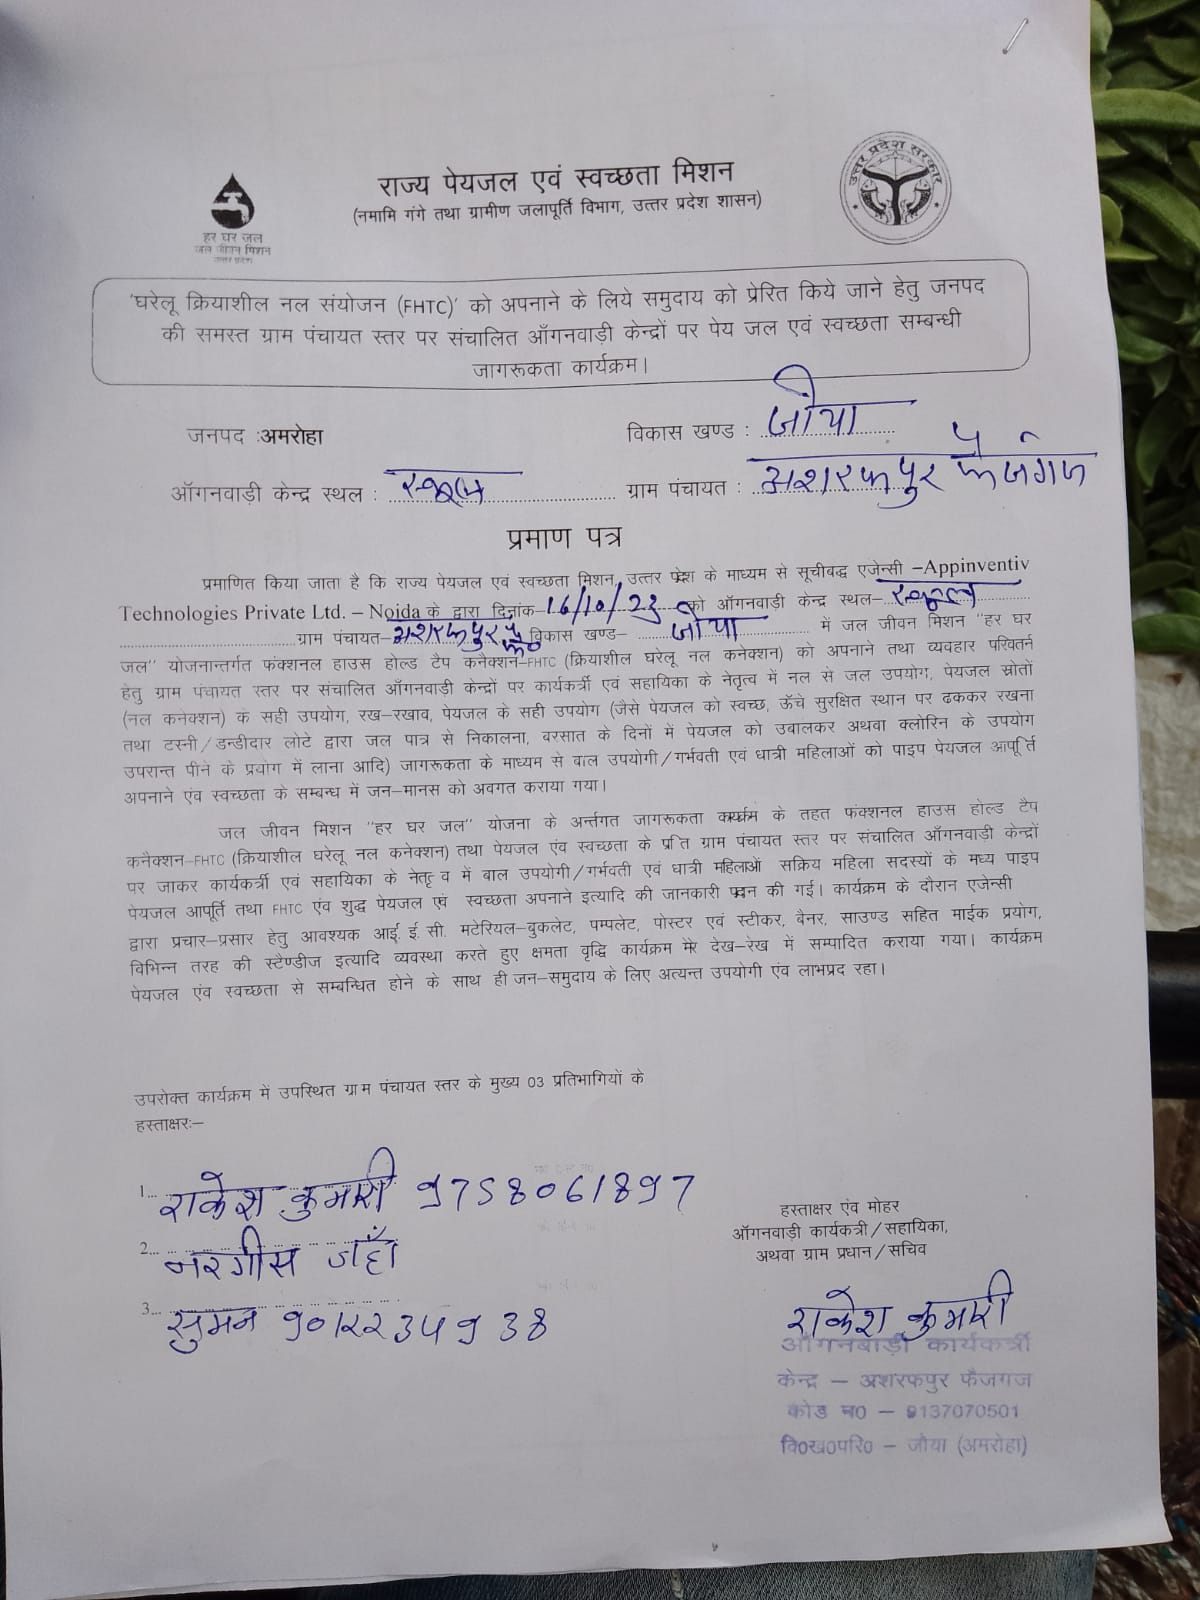 राज्य पेयजल एवं स्वच्छता मिशन
(नमामि गंगे तथा ग्रामीण जलापूर्ति विभाग, उत्तर प्रदेश शासन)
हर घर जल
जल जीवन मिशन
उत्तर प्रदेश
उत्तर प्रदेश सरकार
'घरेलू क्रियाशील नल संयोजन (FHTC)' को अपनाने के लिये समुदाय को प्रेरित किये जाने हेतु जनपद
की समस्त ग्राम पंचायत स्तर पर संचालित आँगनवाड़ी केन्द्रों पर पेय जल एवं स्वच्छता सम्बन्धी
जागरूकता कार्यक्रम।
जनपद :अमरोहा विकास खण्ड : जोया
ऑगनवाड़ी केन्द्र स्थल : स्कूल ग्राम पंचायत : अशरफपुर फैजगंज
प्रमाण पत्र
प्रमाणित किया जाता है कि राज्य पेयजल एवं स्वच्छता मिशन, उत्तर प्रदेश के माध्यम से सूचीबद्ध एजेन्सी –Appinventiv
Technologies Private Ltd. – Noida के द्वारा दिनांक-16/10/23 को ऑगनवाड़ी केन्द्र स्थल- स्कूल
ग्राम पंचायत- अशरफपुर फै० विकास खण्ड- जोया में जल जीवन मिशन "हर घर
जल" योजनान्तर्गत फंक्शनल हाउस होल्ड टैप कनैक्शन-FHTC (क्रियाशील घरेलू नल कनेक्शन) को अपनाने तथा व्यवहार परिवतर्न
हेतु ग्राम पंचायत स्तर पर संचालित आँगनवाड़ी केन्द्रों पर कार्यकर्त्री एवं सहायिका के नेतृत्व में नल से जल उपयोग, पेयजल स्रोतों
(नल कनेक्शन) के सही उपयोग, रख-रखाव, पेयजल के सही उपयोग (जैसे पेयजल को स्वच्छ, ऊँचे सुरक्षित स्थान पर ढककर रखना
तथा टस्नी/डन्डीदार लोटे द्वारा जल पात्र से निकालना, बरसात के दिनों में पेयजल को उबालकर अथवा क्लोरिन के उपयोग
उपरान्त पीने के प्रयोग में लाना आदि) जागरूकता के माध्यम से बाल उपयोगी/गर्भवती एवं धात्री महिलाओं को पाइप पेयजल आपूर्ति
अपनाने एंव स्वच्छता के सम्बन्ध में जन-मानस को अवगत कराया गया।
जल जीवन मिशन "हर घर जल" योजना के अर्न्तगत जागरूकता कार्यक्रम के तहत फंक्शनल हाउस होल्ड टैप
कनैक्शन-FHTC (क्रियाशील घरेलू नल कनेक्शन) तथा पेयजल एंव स्वच्छता के प्रति ग्राम पंचायत स्तर पर संचालित आँगनवाड़ी केन्द्रों
पर जाकर कार्यकर्त्री एवं सहायिका के नेतृत्व में बाल उपयोगी/गर्भवती एवं धात्री महिलाओं सक्रिय महिला सदस्यों के मध्य पाइप
पेयजल आपूर्ति तथा FHTC एंव शुद्ध पेयजल एवं स्वच्छता अपनाने इत्यादि की जानकारी प्रदान की गई। कार्यक्रम के दौरान एजेन्सी
द्वारा प्रचार-प्रसार हेतु आवश्यक आई.ई.सी. मटेरियल-बुकलेट, पम्पलेट, पोस्टर एवं स्टीकर, बैनर, साउण्ड सहित माईक प्रयोग,
विभिन्न तरह की स्टैण्डीज इत्यादि व्यवस्था करते हुए क्षमता वृद्धि कार्यक्रम मेरे देख-रेख में सम्पादित कराया गया। कार्यक्रम
पेयजल एंव स्वच्छता से सम्बन्धित होने के साथ ही जन-समुदाय के लिए अत्यन्त उपयोगी एंव लाभप्रद रहा।
उपरोक्त कार्यक्रम में उपस्थित ग्राम पंचायत स्तर के मुख्य 03 प्रतिभागियों के
हस्ताक्षरः-
1... राकेश कुमारी 9758061897
2... नरगीस जहाँ
3... सुमन 9012234938
हस्ताक्षर एंव मोहर
ऑगनवाड़ी कार्यकत्री/सहायिका,
अथवा ग्राम प्रधान/सचिव
राकेश कुमारी
आँगनबाड़ी कार्यकर्त्री
केन्द्र – अशरफपुर फैजगज
कोड न० – 9137070501
वि०ख०परि० – जोया (अमरोहा)